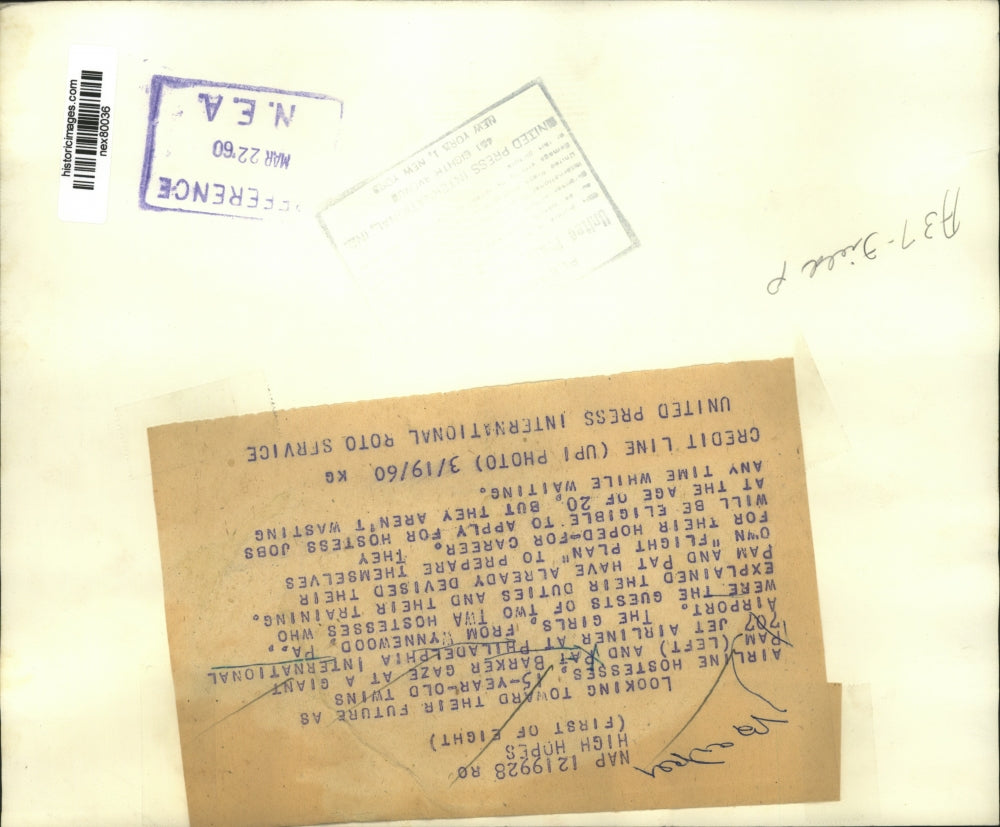 historicimages.com
nex80036
REFERENCE
MAR 22 '60
N.E.A.
UNITED PRESS INTERNATIONAL, INC.
461 EIGHTH AVENUE
NEW YORK 1, NEW YORK
A37-Field P
NAP 1219928 RO
HIGH HOPES
(FIRST OF EIGHT)
LOOKING TOWARD THEIR FUTURE AS
AIRLINE HOSTESSES, 15-YEAR-OLD TWINS
PAM (LEFT) AND PAT BARKER GAZE AT A GIANT
707 JET AIRLINER AT PHILADELPHIA INTERNATIONAL
AIRPORT. THE GIRLS, FROM WYNNEWOOD, PA.,
WERE THE GUESTS OF TWO TWA HOSTESSES WHO
EXPLAINED THEIR DUTIES AND THEIR TRAINING.
PAM AND PAT HAVE ALREADY DEVISED THEIR
OWN "FLIGHT PLAN" TO PREPARE THEMSELVES
FOR THEIR HOPED-FOR CAREER. THEY
WILL BE ELIGIBLE TO APPLY FOR HOSTESS JOBS
AT THE AGE OF 20, BUT THEY AREN'T WASTING
ANY TIME WHILE WAITING.
CREDIT LINE (UPI PHOTO) 3/19/60 KG
UNITED PRESS INTERNATIONAL ROTO SERVICE